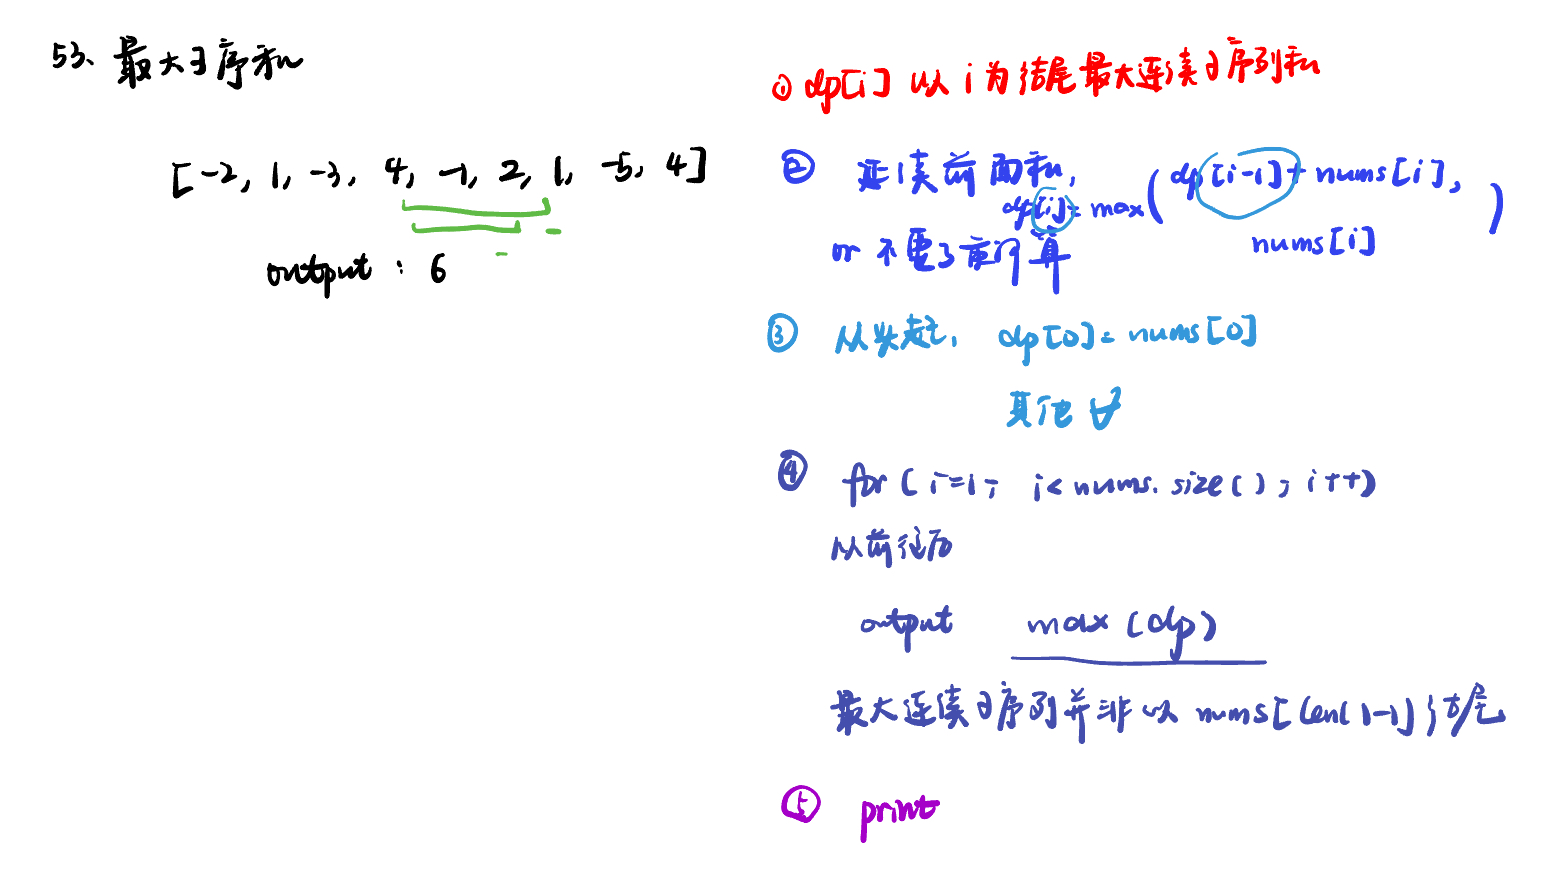 53、最大子序和
[-2, 1, -3, 4, -1, 2, 1, -5, 4]
output : 6
① dp[i] 以 i 为结尾最大连续子序列和
② 延续前面和,
dp[i] = max(dp[i-1] + nums[i],
nums[i])
or 不要了重新算
③ 从头起, dp[0] = nums[0]
其他 ∀
④ for (i=1; i< nums.size(); i++)
从前往后
output max(dp)
最大连续子序列并非以 nums[len()-1]结尾
⑤ print